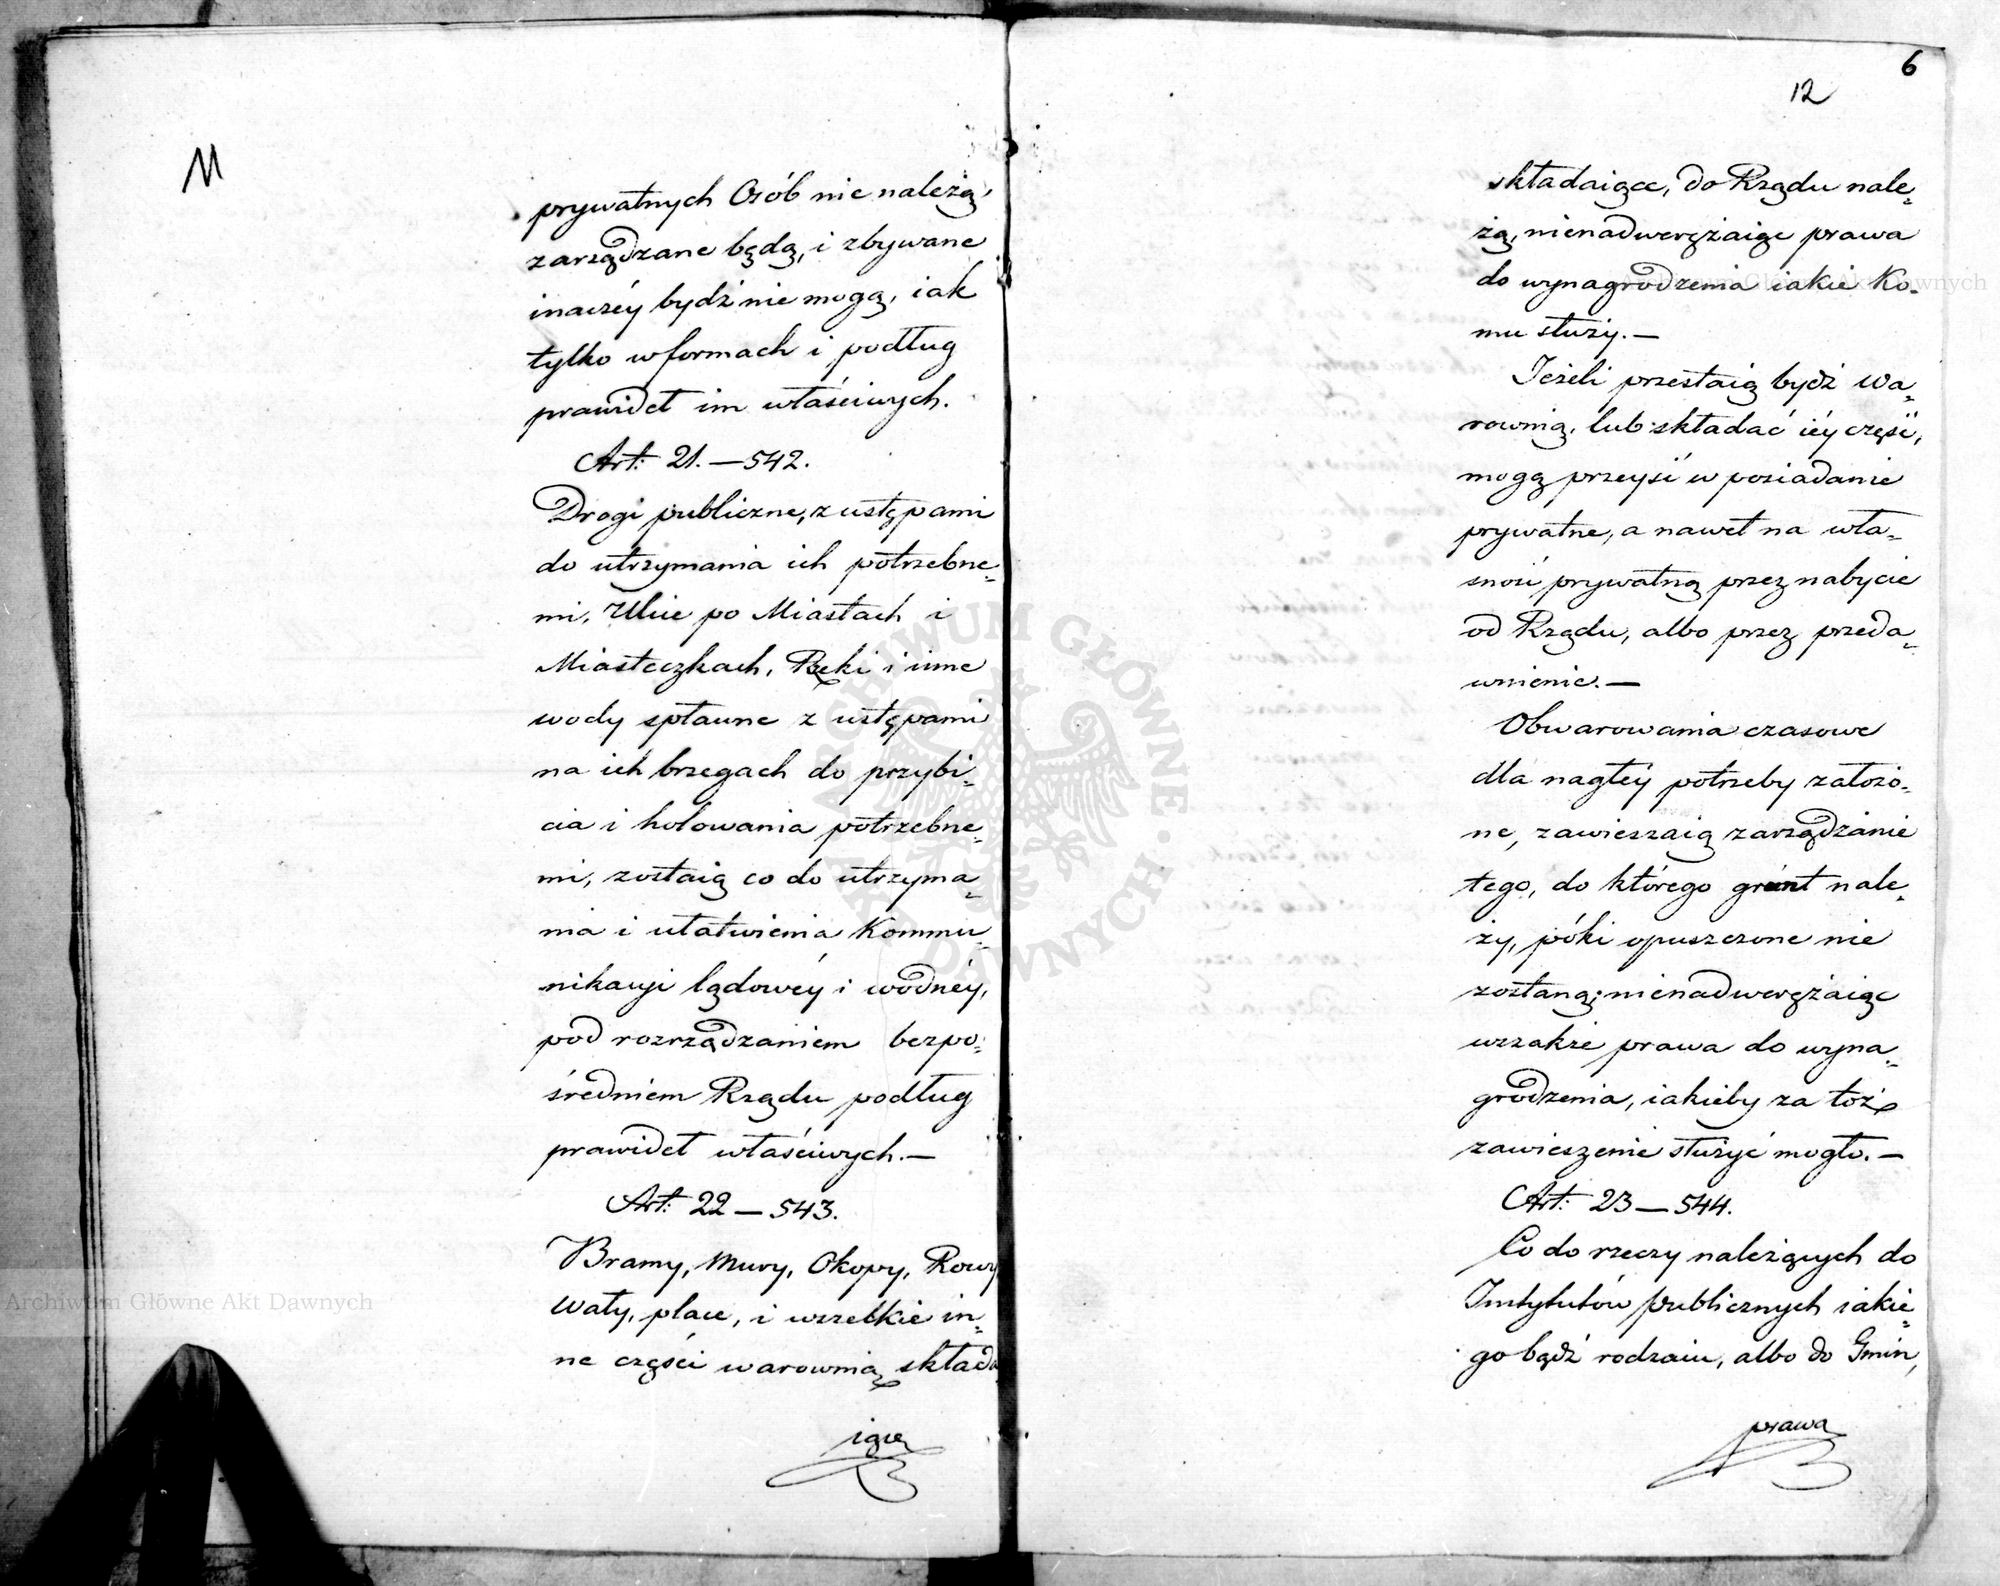 11
prywatnych Osób nie należą,
zarządzane będą, i zbywane
inaczéy bydź nie mogą, iak
tylko w formach i podług
prawideł im właściwych.
Art: 21. — 542.
Drogi publiczne, z ustępami
do utrzymania ich potrzebne=
mi, Ulice po Miastach i
Miasteczkach, Rzeki i inne
wody spławne z ustępami
na ich brzegach do przybi=
cia i holowania potrzebne=
mi, zostaią co do utrzyma=
nia i ułatwienia Kommu=
nikacyi lądowéy i wodnéy,
pod rozrządzaniem bezpo=
średniem Rządu podług
prawideł właściwych. —
Art: 22 — 543.
Bramy, Mury, Okopy, Rowy
Wały, place, i wszelkie in=
ne części warownią składa
iące
6
12
składaiące, do Rządu nale=
żą, nienadwerężaiąc prawa
do wynagrodzenia iakie Ko=
mu służy. —
Jeżeli przestaią bydź Wa=
rownią, lub składać iéy części,
mogą przeyść w posiadanie
prywatne, a nawet na wła=
sność prywatną przez nabycie
od Rządu, albo przez przeda=
wnienie. —
Obwarowania czasowe
dla nagłéy potrzeby założo=
ne, zawieszaią zarządzanie
tego, do którego grunt nale=
ży, póki opuszczone nie
zostaną; nienadwerężaiąc
wszakże prawa do wyna=
grodzenia, iakieby za toż
zawieszenie służyć mogło. —
Art: 23 — 544.
Co do rzeczy należących do
Instytutów publicznych iakie=
go bądź rodzaiu, albo do Gmin,
prawa
Archiwum Główne Akt Dawnych
Archiwum Główne Akt Dawnych
ARCHIWUM GŁÓWNE AKT DAWNYCH